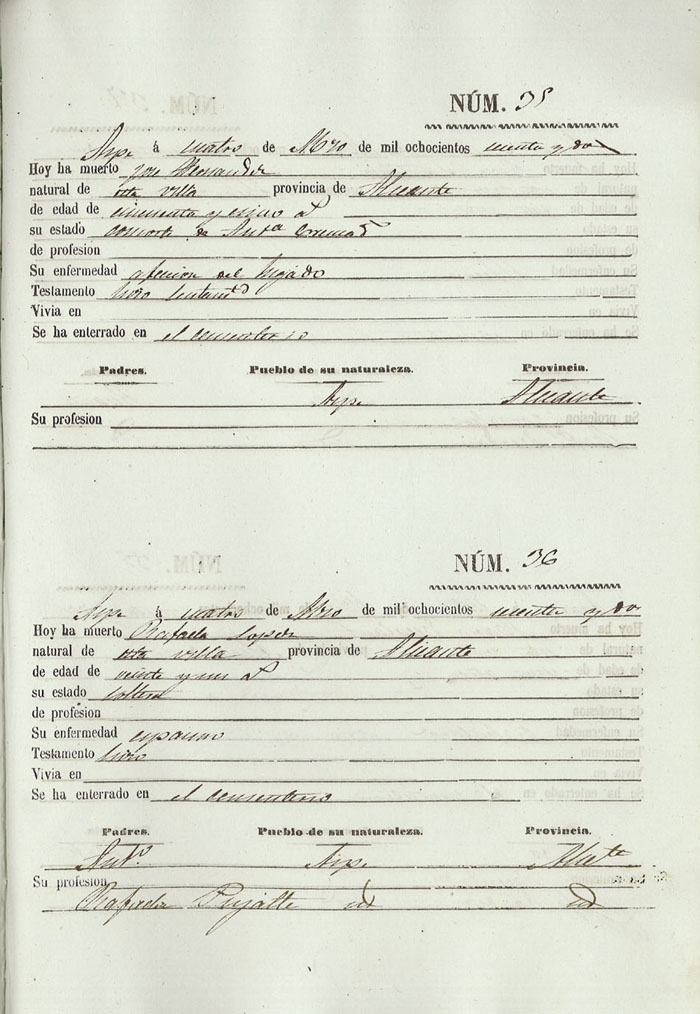 NÚM. 35
Aspe á cuatro de Mzo de mil ochocientos cincuenta y dos
Hoy ha muerto Jose Hernandez
natural de esta villa provincia de Alicante
de edad de cincuenta y cinco a.s
su estado consorte de Ant.a
de profesion
Su enfermedad afeccion del higado
Testamento hizo
Vivia en
Se ha enterrado en el cementerio
Padres. Pueblo de su naturaleza. Provincia.
Aspe Alicante
Su profesion
NÚM. 36
Aspe á cuatro de Mzo de mil ochocientos cincuenta y dos
Hoy ha muerto Rafaela Lopez
natural de esta villa provincia de Alicante
de edad de veinte y un a.s
su estado soltera
de profesion
Su enfermedad
Testamento
Vivia en
Se ha enterrado en el cementerio
Padres. Pueblo de su naturaleza. Provincia.
Ant.o Aspe Alic.te
Su profesion
Rafaela Pujalte id id